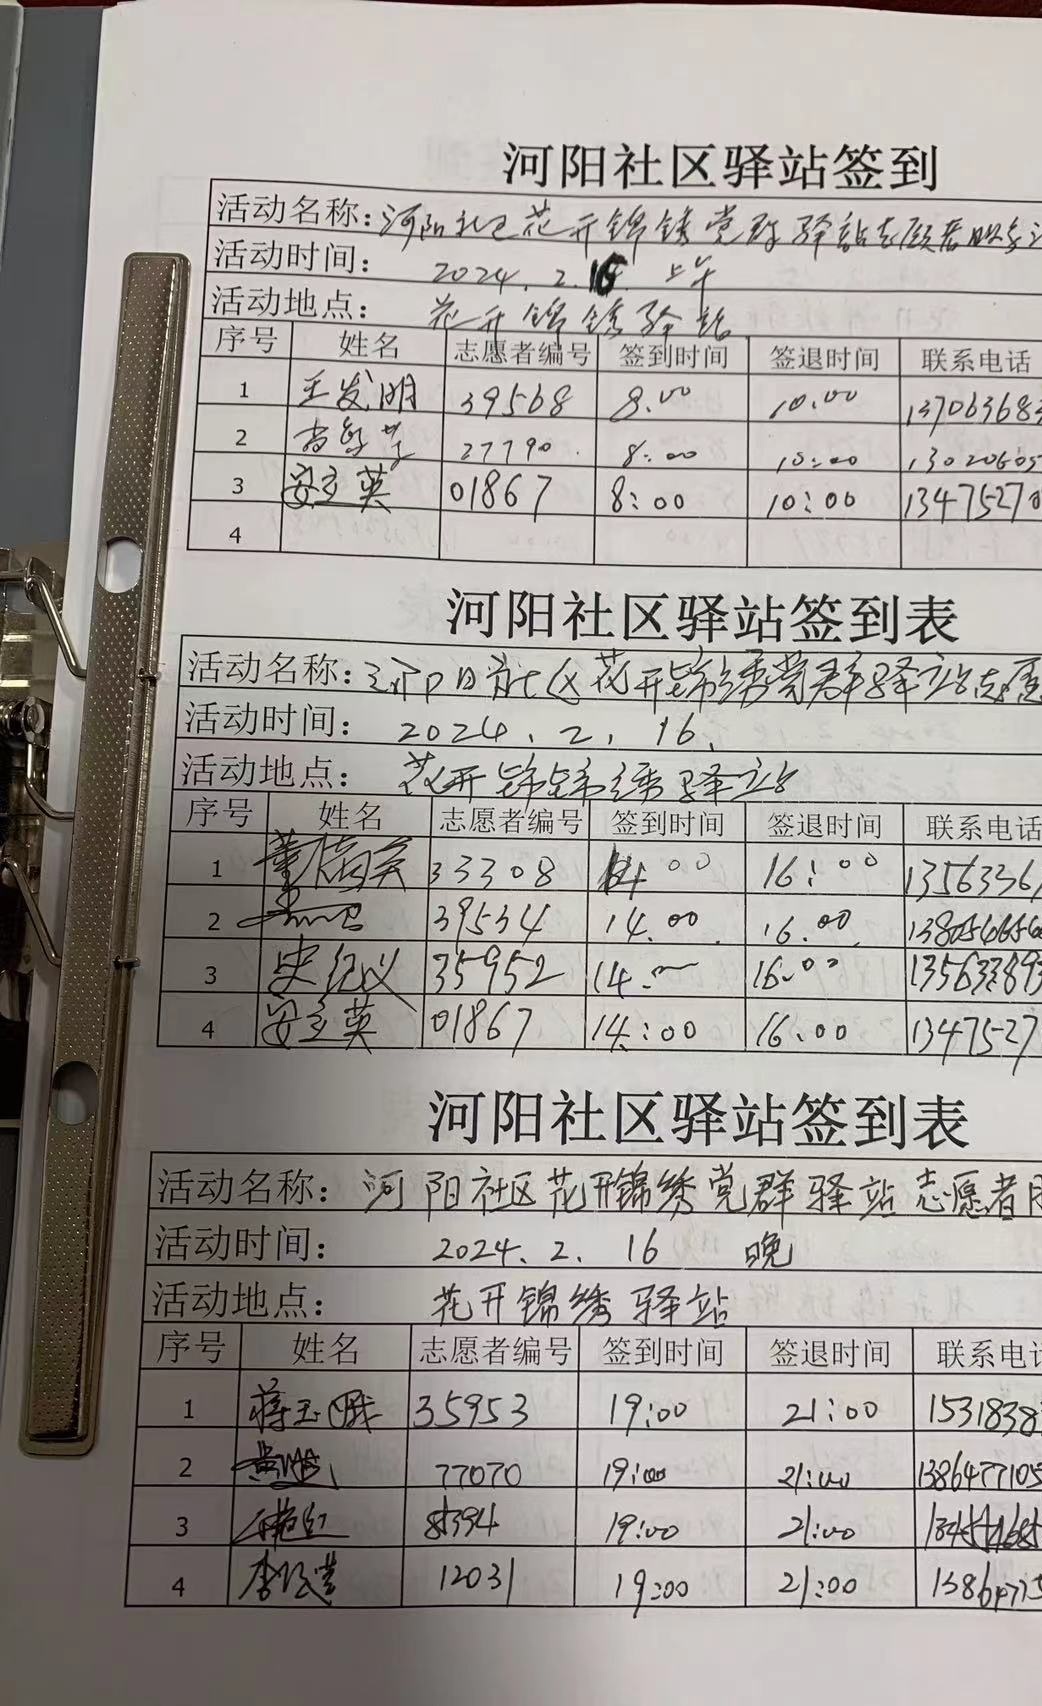 河阳社区驿站签到
活动名称：河阳社区花开锦绣党群驿站志愿者服务
活动时间： 2024.2.16 上午
活动地点： 花开锦绣驿站
序号 姓名 志愿者编号 签到时间 签退时间 联系电话
1 王发明 39568 8:00 10:00 13706368
2 27790 8:00 10:00 13020605
3 安立英 01867 8:00 10:00 13475270
4
河阳社区驿站签到表
活动名称：河阳社区花开锦绣党群驿站志愿
活动时间： 2024.2.16.
活动地点： 花开锦绣驿站
序号 姓名 志愿者编号 签到时间 签退时间 联系电话
1 33308 14:00 16:00 1356336
2 39534 14.00 16.00
3 史纪义 35952 14. 16.00 135633893
4 安立英 01867 14:00 16.00 1347527
河阳社区驿站签到表
活动名称： 河阳社区花开锦绣党群驿站志愿者
活动时间： 2024.2.16 晚
活动地点： 花开锦绣驿站
序号 姓名 志愿者编号 签到时间 签退时间 联系电
1 蒋玉娥 35953 19:00 21:00 15318383
2 77070 19:00 21:00 1386477105
3 19:00 21:00
4 12031 19:00 21:00 1386477